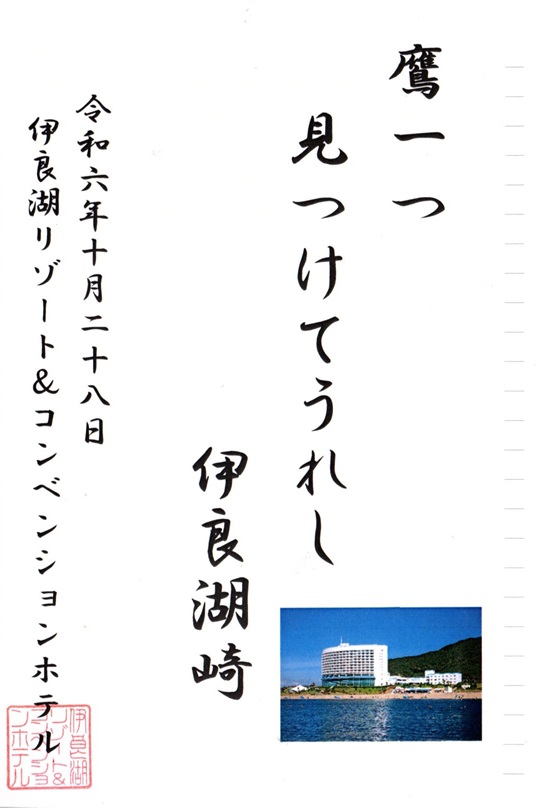 鷹一つ
見つけてうれし
伊良湖崎
令和六年十月二十八日
伊良湖リゾート&コンベンションホテル
伊良湖
リゾート&
コンベンショ
ンホテル